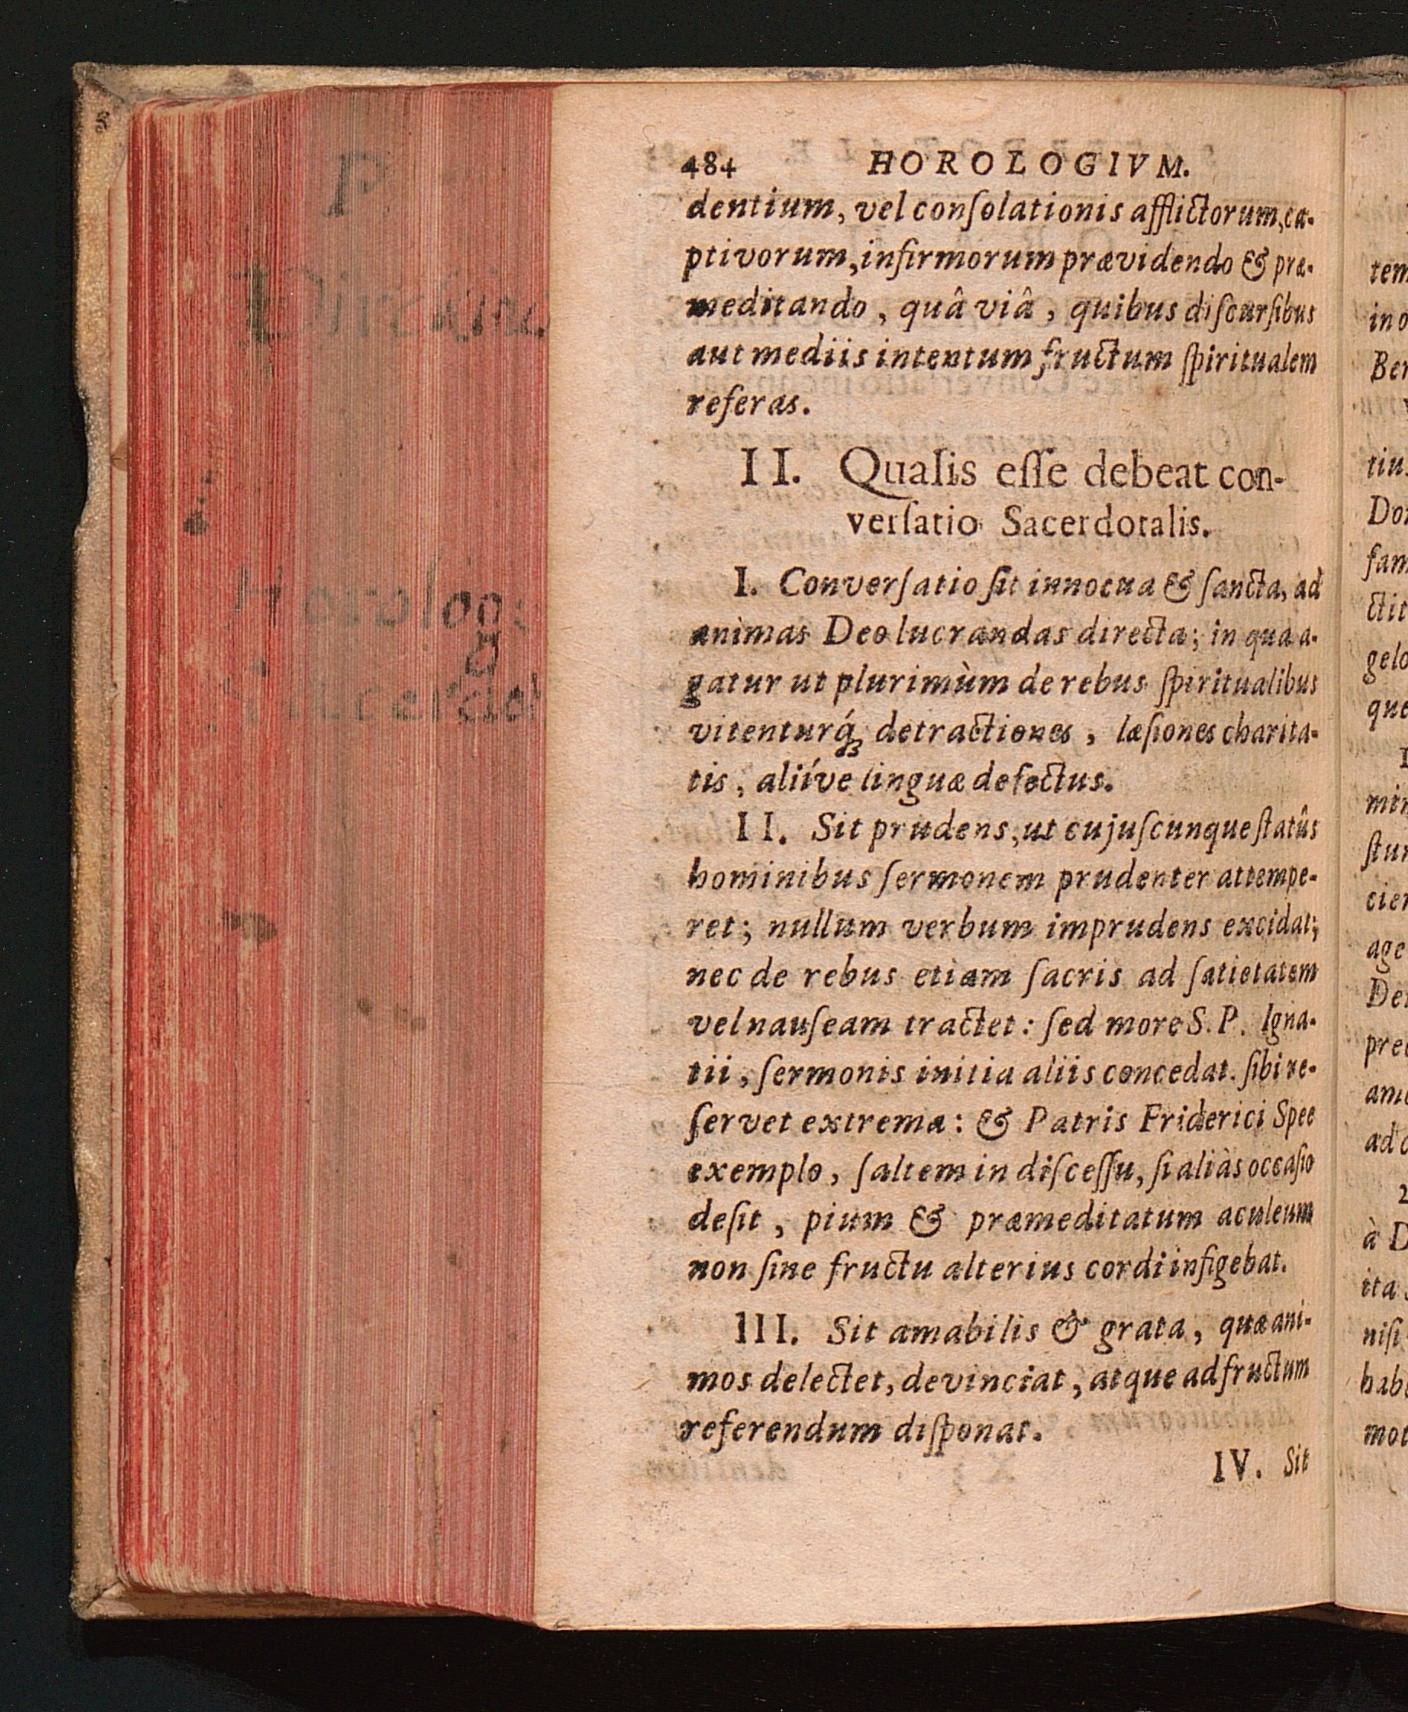 484 HOROLOGIVM.
dentium, vel conſolationis afflictorum, ca-
ptivorum, infirmorum prævidendo & præ-
meditando, quâ viâ, quibus diſcurſibus
aut mediis intentum fructum ſpiritualem
referas.
II. Qualis eſſe debeat con-
verſatio Sacerdotalis.
I. Converſatio ſit innocua & ſancta, ad
animas Deo lucrandas directa; in qua a-
gatur ut plurimùm de rebus ſpiritualibus
vitenturq́; detractiones, læſiones charita-
tis, aliíve linguæ defectus.
II. Sit prudens, ut cujuſcunque ſtatûs
hominibus ſermonem prudenter attempe-
ret; nullum verbum imprudens excidat;
nec de rebus etiam ſacris ad ſatietatem
vel nauſeam tractet: ſed more S. P. Igna-
tii, ſermonis initia aliis concedat. ſibi re-
ſervet extrema: & Patris Friderici Spee
exemplo, ſaltem in diſceſſu, ſi aliàs occaſio
deſit, pium & præmeditatum aculeum
non ſine fructu alterius cordi infigebat.
III. Sit amabilis & grata, quæ ani-
mos delectet, devinciat, atque ad fructum
referendum diſponat.
IV. Sit